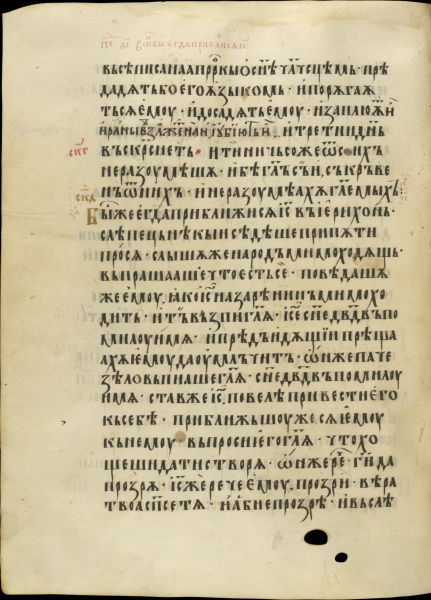 вьсѣ писанаа пррⷪкы ѡ сн҃ѣ чл҃чⷭцѣмь · прѣ
дадѧть бо его ѧзыкомь · и порѫгаѫ
тьсѧ ємоу · и досадѧть ємоу · и заплюѫⷮ и
и раны възложѧⷮ нань и оубиюⷮ и · и третии днь
въскрⷭснеть · и ти ничьсоже ѿ сихъ
не разоумѣшѫ · и бѣ гл҃ъ съи съкръве
нъ ѿ нихъ · и не разоумѣахѫ гл҃емыхъ
Бы же єгда приближисѧ іс҃ въ іерихонь ·
слѣпець нѣкыи сѣдѣше при пѫти
просѧ · слышѫ же народъ мимоходѧщь ·
въпрашааше что есть се · повѣдашѫ
же емоу · ꙗко іс҃ назарѣнинъ мимохо
дить · и тъ възъпи гл҃ѧ · іс҃е сн҃е дв҃двъ по
милоуи мѧ · и прѣдъидѫщии прѣща
ахѫ ємоу да оумлъчить · ѡнъ же паче
ѕѣло въпиаше гл҃ѧ · сн҃е дв҃двъ помилоу
и мѧ · став же іс҃ повелѣ привести єго
къ себѣ · приближьшоу же сѧ ємоу
къ немоу · въпроси єго гл҃ѧ · что хо
щеши да ти створѧ · ѡнъ же реⷱ҇ · ги҃ да
прозрѧ · іс҃ же рече ємоу · прозри · вѣра
твоа сп҃се тѧ · и абие прозрѣ · и въслѣ